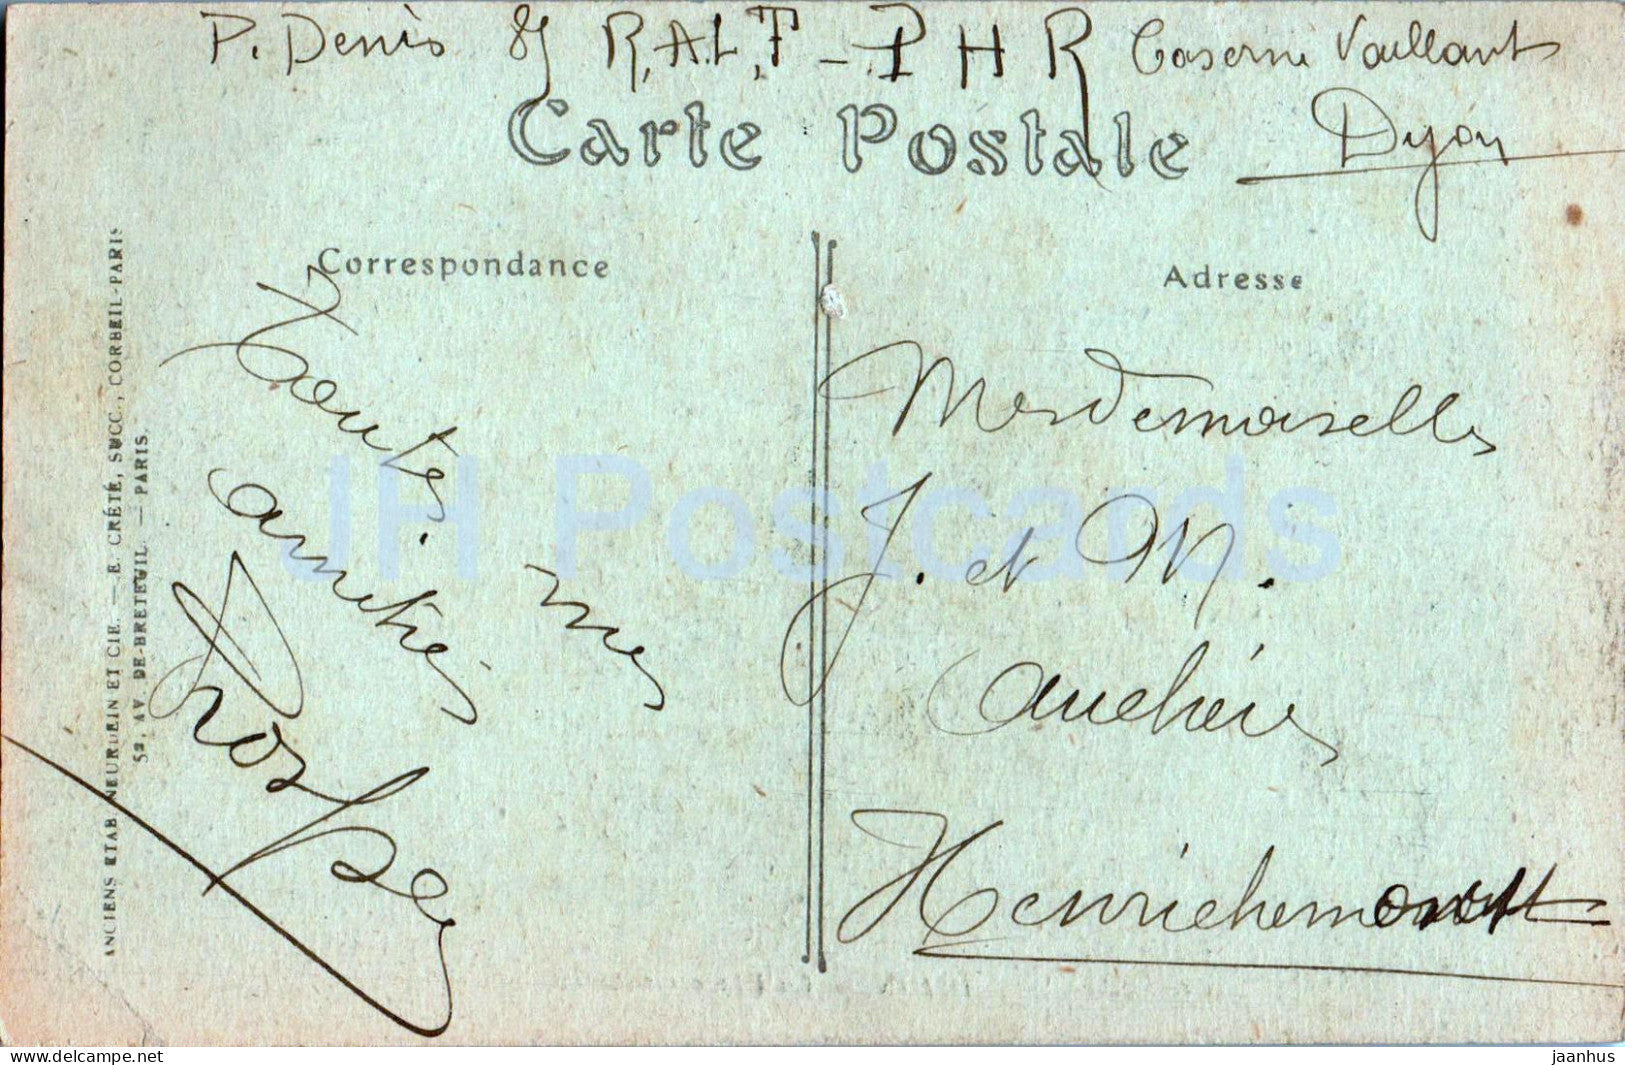 P. Denis 8 R.A.L.T. - P H R Caserne Vaillant
Dijon
Carte Postale
Correspondance
Toutes
mes
amitiés
Prosper
Adresse
Mesdemoiselles
J. et M.
Auchère
Henrichemont
ANCIENS ETAB. NEURDEIN ET CIE. — E. CRÉTÉ, SUCC., CORBEIL-PARIS
52, AV. DE BRETEUIL. — PARIS.
JH Postcards
jaanhus